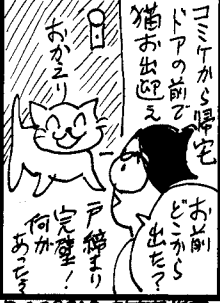 コミケから帰宅
ドアの前で
猫お出迎え
おかエリ
お前
どこから
出た?
戸締まり
完璧!
何が
あった?